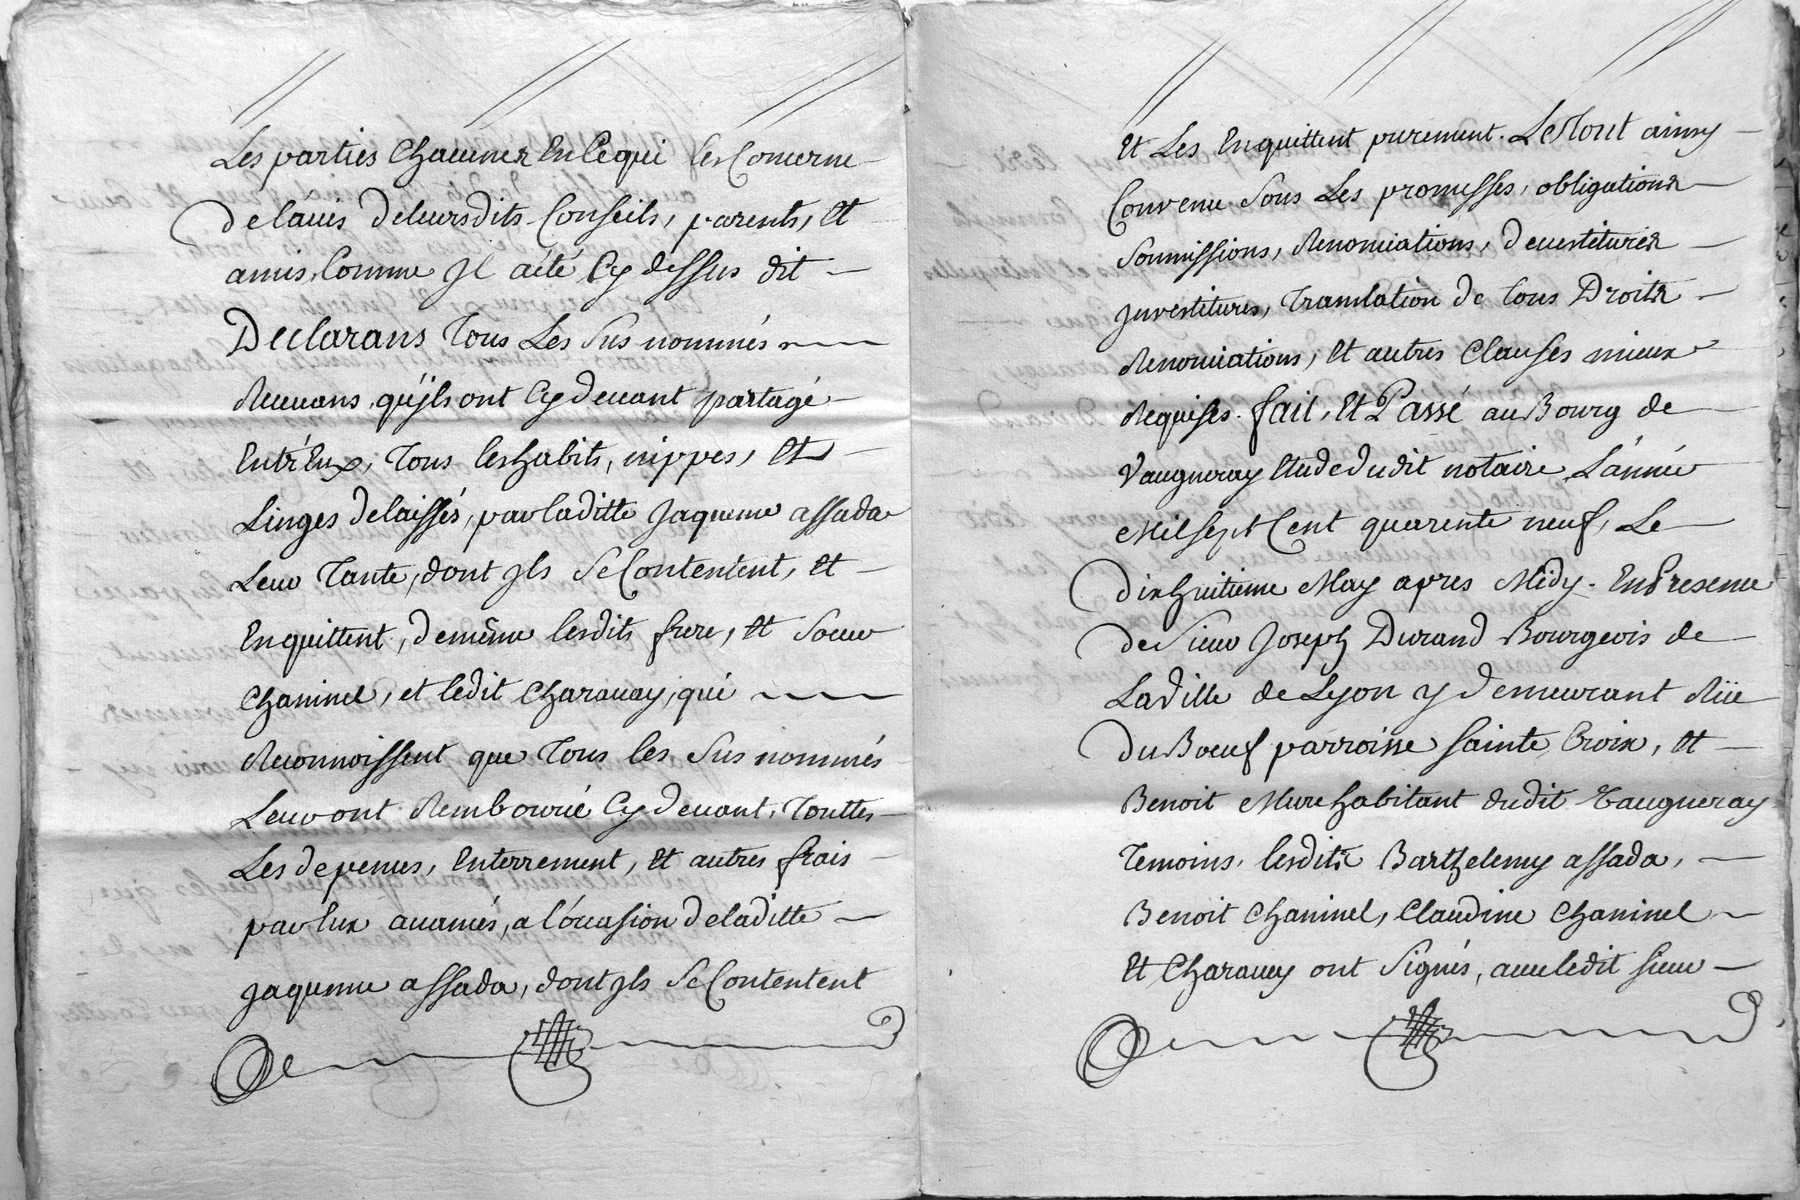 Les parties Chacunes En Ce qui les Concerne
De l'auis De leursdits Conseils, parents, Et
amis, Comme Jl a été Cy dessus dit
Declarans Tous Les Sus nommés
Receuans qu'jls ont Cy deuant partagé
Entr'Eux, Tous les habits, nippes, Et
Linges delaissés, par laditte Jaqueme assada
Leur Tante, dont Jls Se Contentent, Et
En quittent, de même lesdits frere, Et Soeur
Chaninel, et ledit Charauay, qui
Reconnoissent que Tous les Sus nommés
Leur ont Rembourcé Cy deuant, Touttes
Les depences, Enterrement, Et autres frais
par Eux auancés, a l'occasion De laditte
Jaquemme assada, dont Jls Se Contentent
Et Les En quittent purement. Le Tout ainsy
Convenu Sous Les promesses, obligations
Soumissions, Renonciations, devestitures
Jnvestitures, Translation de Tous Droits
Renonciations, Et autres Clauses mieux
Requises. fait, Et Passé au Bourg de
Vaugneray Etude dudit notaire L'année
Mil Sept Cent quarente neuf, Le
Dix huitieme May apres Midy. En Presence
de Sieur Joseph Durand Bourgeois de
La Ville de Lyon y demeurant Rüe
Du Boeuf parroisse Sainte Croix, Et
Benoit Mure habitant dudit Vaugneray
Temoins. lesdits Barthelemy assada,
Benoit Chaninel, Claudine Chaninel
Et Charauay ont Signés, auec ledit Sieur